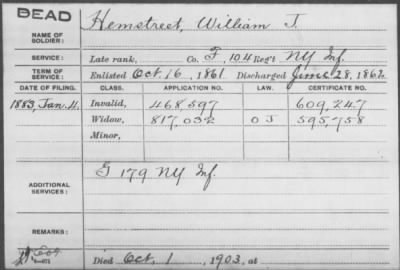 DEAD
NAME OF SOLDIER: Hemstreet, William J.
SERVICE: Late rank, Co. F, 104 Reg't NY Inf.
TERM OF SERVICE: Enlisted Oct 16, 1861 Discharged June 28, 1862
DATE OF FILING. CLASS. APPLICATION NO. LAW. CERTIFICATE NO.
1883, Jan. 11. Invalid, 468,597 609,247
Widow, 817,032 O J 595,758
Minor,
ADDITIONAL SERVICES: G 179 NY Inf.
REMARKS:
Died Oct. 1, 1903, at